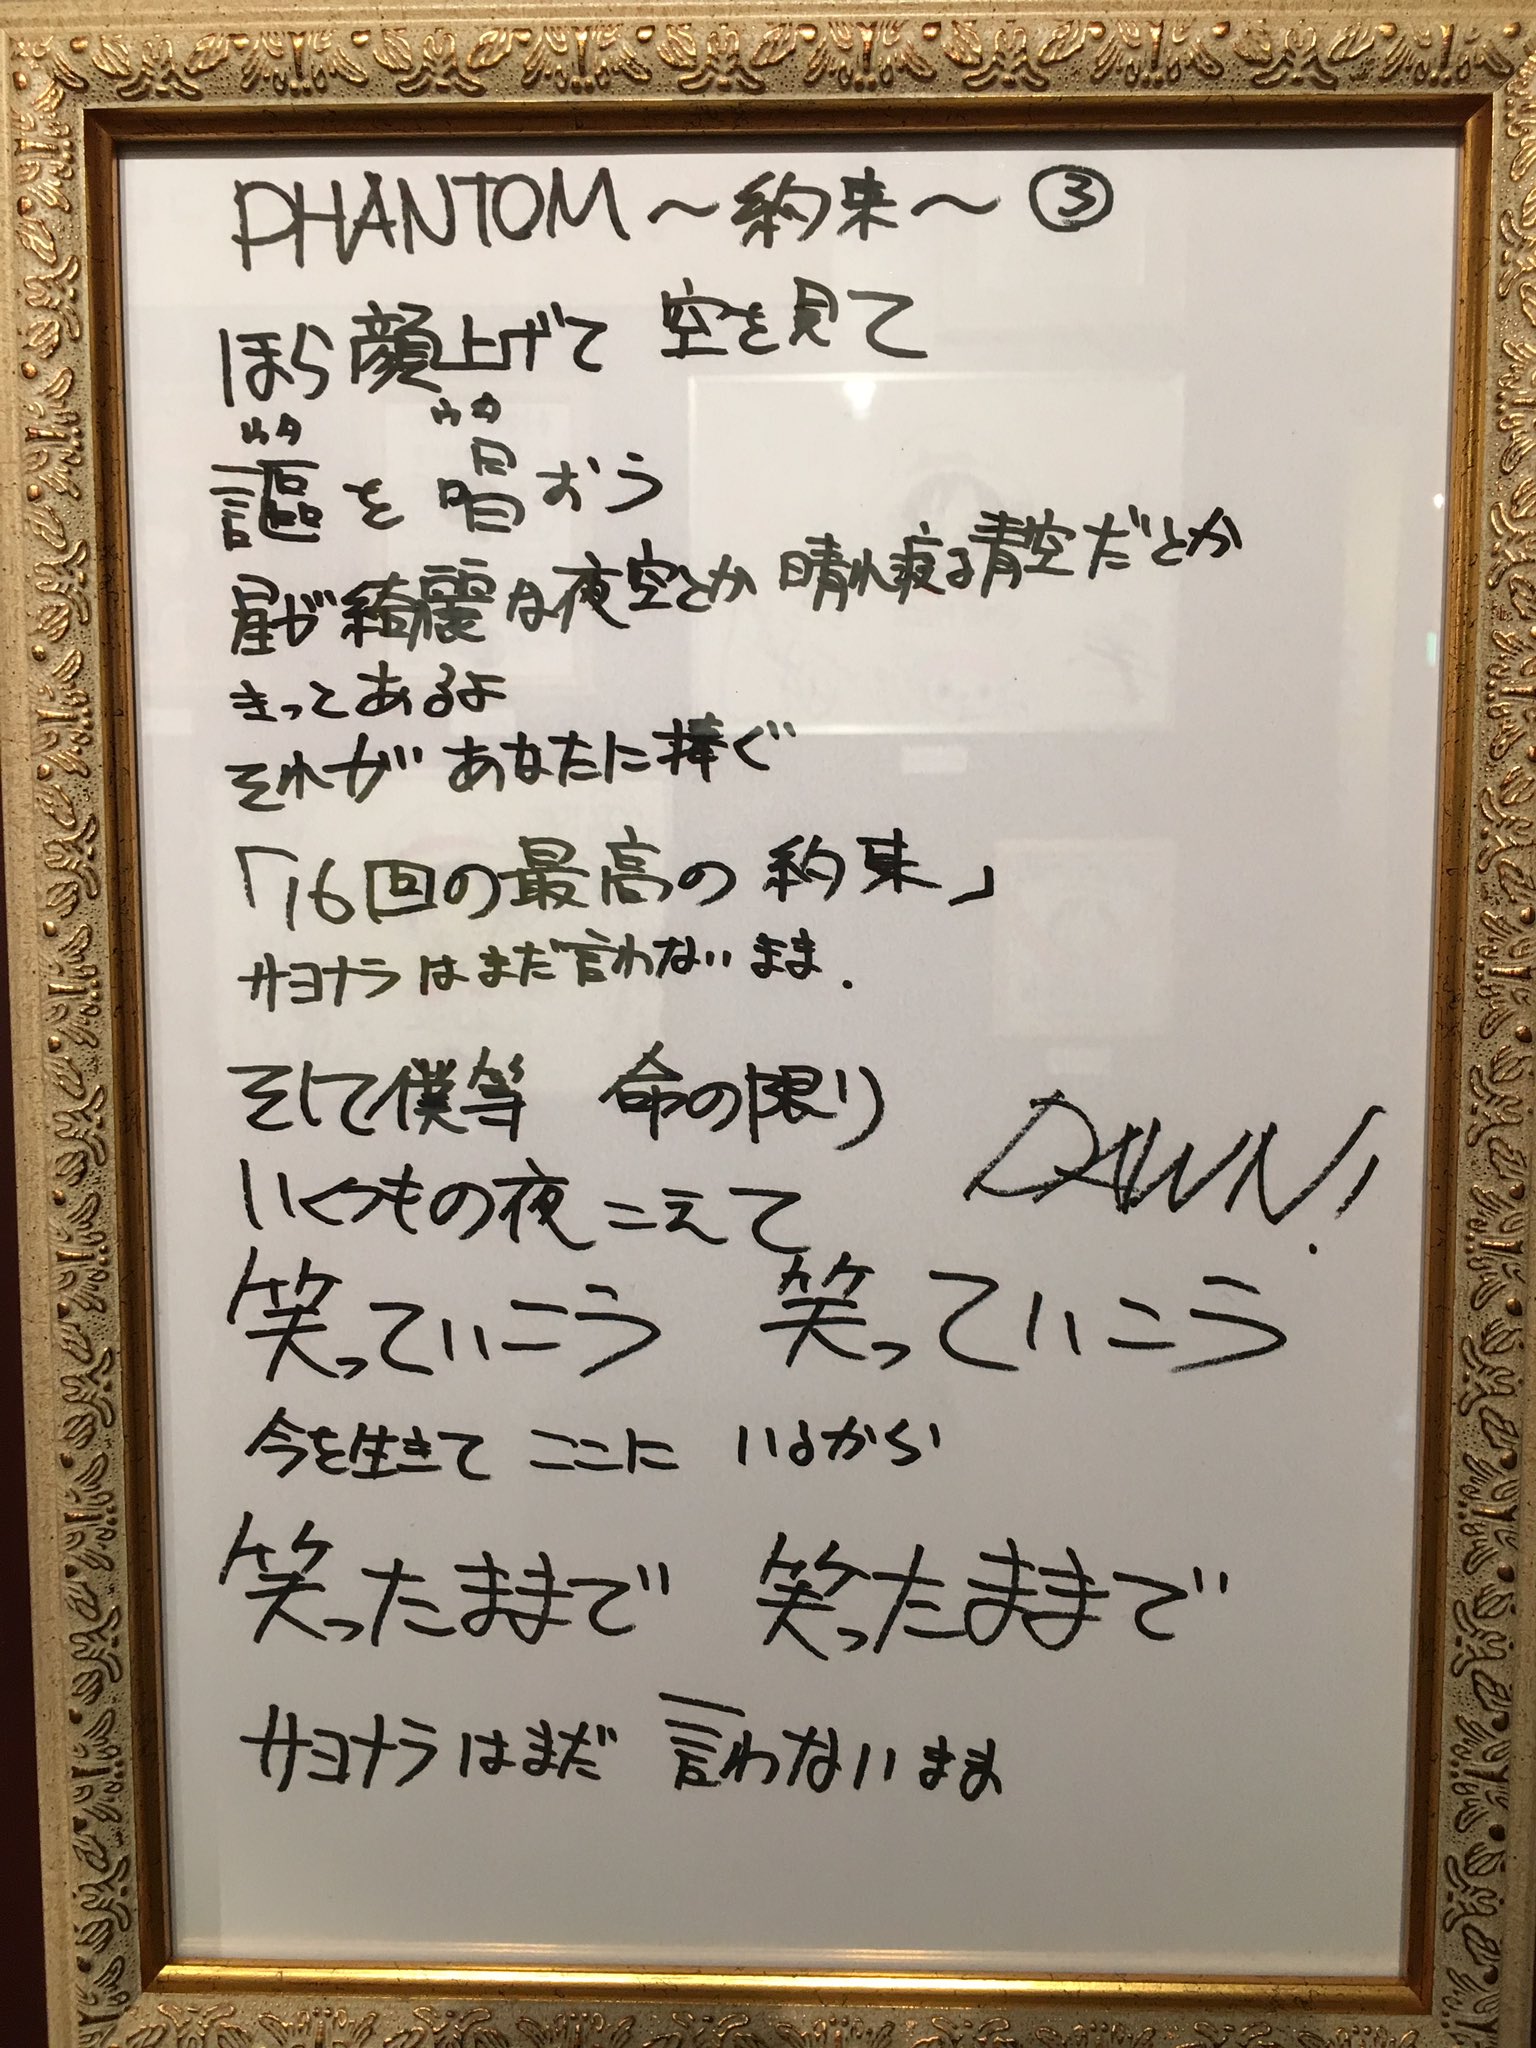 PHANTOM ～約束～ ③
ほら顔上げて 空を見て
ウタ ウタ
謳を唱おう
星が綺麗な夜空とか 晴れ渡る青空だとか
きっとあるよ
それが あなたに捧ぐ
「16回の最高の約束」
サヨナラはまだ言わないまま.
そして僕等 命の限り
DAWN!
いくつもの夜 こえて
笑っていこう 笑っていこう
今を生きて ここに いるから
笑ったままで 笑ったままで
サヨナラはまだ 言わないまま